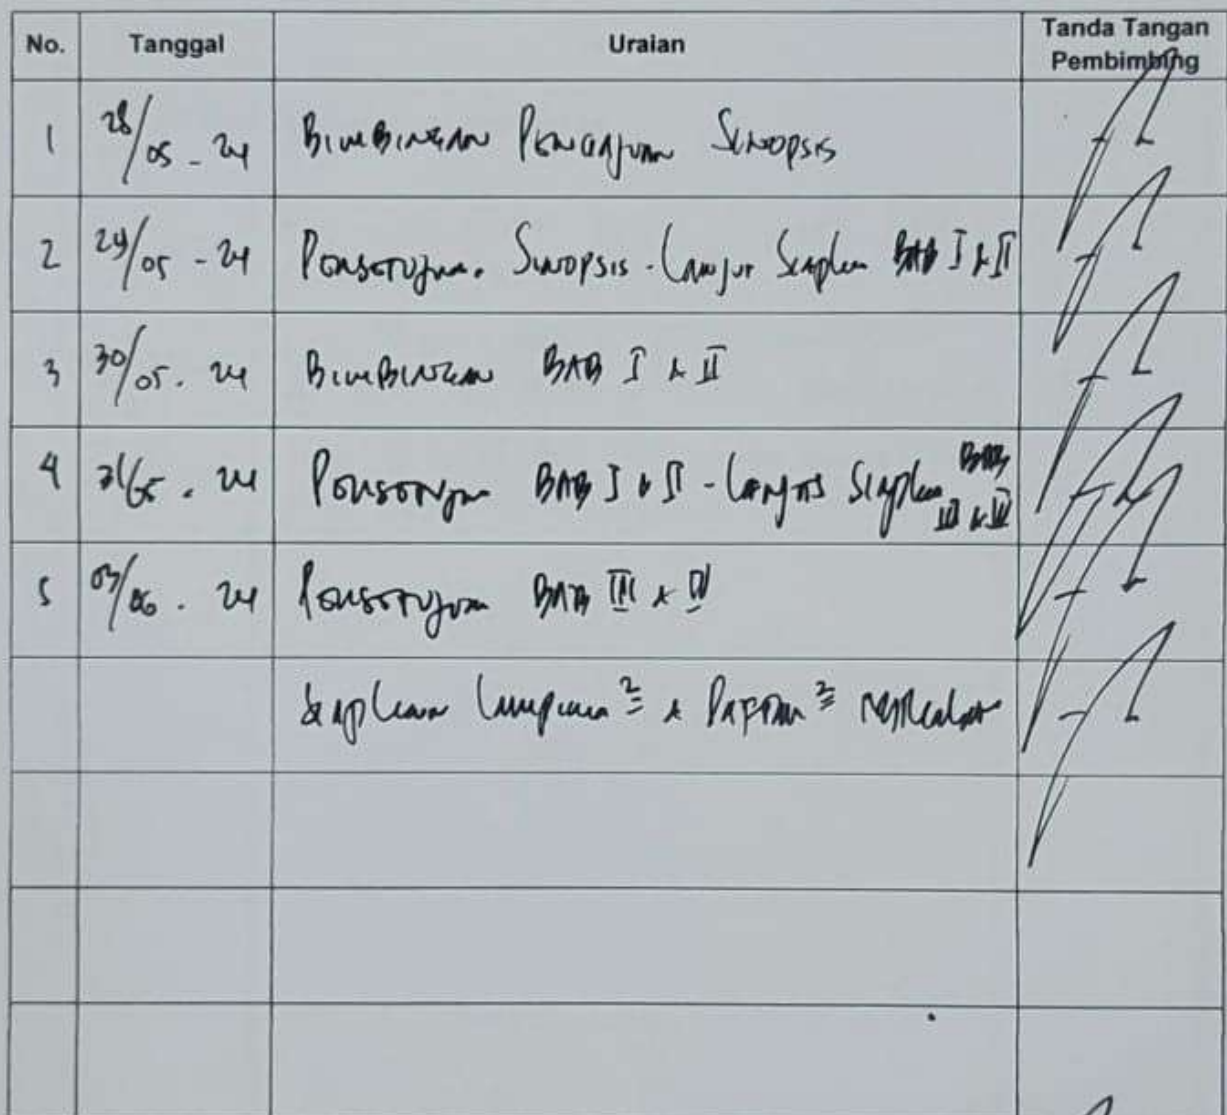 No. Tanggal Uraian Tanda Tangan
Pembimbing
1 28/05 - 24 Bimbingan Pengajuan Sinopsis
2 29/05 - 24 Persetujuan. Sinopsis - Lanjut Siapkan BAB I & II
3 30/05 . 24 Bimbingan BAB I & II
4 31/05 . 24 Persetujuan BAB I & II - Lanjut Siapkan BAB
III & IV
5 03/06 . 24 Persetujuan BAB III & IV
Siapkan Lampiran² & Daftar²